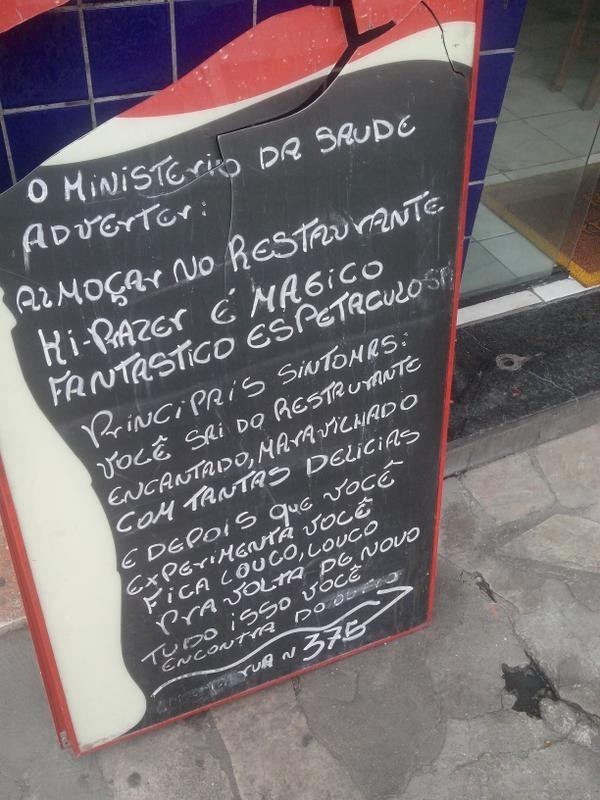 O MINISTERIO DA SAUDE
ADVERTER:
ALMOÇAR NO RESTAURANTE
KI-PRAZER É MAGICO
FANTASTICO ESPETACULOSO
PRINCIPAIS SINTOMAS:
VOCÊ SAI DO RESTAURANTE
ENCANTADO, MARAVILHADO
COM TANTAS DELICIAS
E DEPOIS QUE VOCÊ
EXPERIMENTA VOCÊ
FICA LOUCO, LOUCO
PRA VOLTA DE NOVO
TUDO ISSO VOCÊ
ENCONTRA DO
RUA N 375